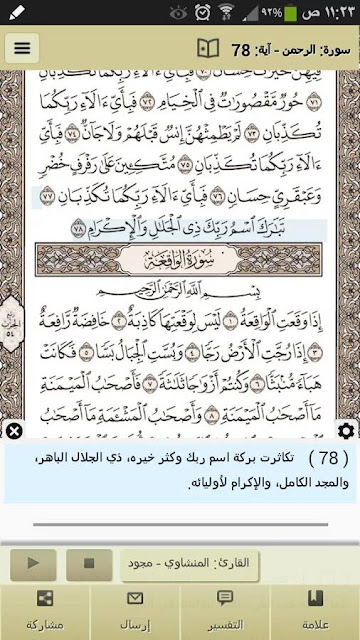 ١١:٢٣ ص ٩٢%
سورة: الرحمن - آية: 78
فِيهِنَّ خَيْرَٰتٌ حِسَانٌ ۝٧٠ فَبِأَيِّ ءَالَآءِ رَبِّكُمَا تُكَذِّبَانِ
۝٧١ حُورٌ مَّقْصُورَٰتٌ فِي ٱلْخِيَامِ ۝٧٢ فَبِأَيِّ ءَالَآءِ رَبِّكُمَا
تُكَذِّبَانِ ۝٧٣ لَمْ يَطْمِثْهُنَّ إِنسٌ قَبْلَهُمْ وَلَا جَآنٌّ ۝٧٤ فَبِأَيِّ
ءَالَآءِ رَبِّكُمَا تُكَذِّبَانِ ۝٧٥ مُتَّكِـِٔينَ عَلَىٰ رَفْرَفٍ خُضْرٍ
وَعَبْقَرِيٍّ حِسَانٍ ۝٧٦ فَبِأَيِّ ءَالَآءِ رَبِّكُمَا تُكَذِّبَانِ ۝٧٧
تَبَٰرَكَ ٱسْمُ رَبِّكَ ذِي ٱلْجَلَٰلِ وَٱلْإِكْرَامِ ۝٧٨
سُورَةُ الْوَاقِعَةِ
بِسْمِ ٱللَّهِ ٱلرَّحْمَٰنِ ٱلرَّحِيمِ
إِذَا وَقَعَتِ ٱلْوَاقِعَةُ ۝١ لَيْسَ لِوَقْعَتِهَا كَاذِبَةٌ ۝٢ خَافِضَةٌ رَّافِعَةٌ
۝٣ إِذَا رُجَّتِ ٱلْأَرْضُ رَجًّا ۝٤ وَبُسَّتِ ٱلْجِبَالُ بَسًّا ۝٥ فَكَانَتْ
هَبَآءً مُّنۢبَثًّا ۝٦ وَكُنتُمْ أَزْوَٰجًا ثَلَٰثَةً ۝٧ فَأَصْحَٰبُ ٱلْمَيْمَنَةِ
مَآ أَصْحَٰبُ ٱلْمَيْمَنَةِ ۝٨ وَأَصْحَٰبُ ٱلْمَشْـَٔمَةِ مَآ أَصْحَٰبُ
(78) تكاثرت بركة اسم ربك وكثر خيره، ذي الجلال الباهر،
والمجد الكامل، والإكرام لأوليائه.
القارئ: المنشاوي - مجود
علامة التفسير إرسال مشاركة